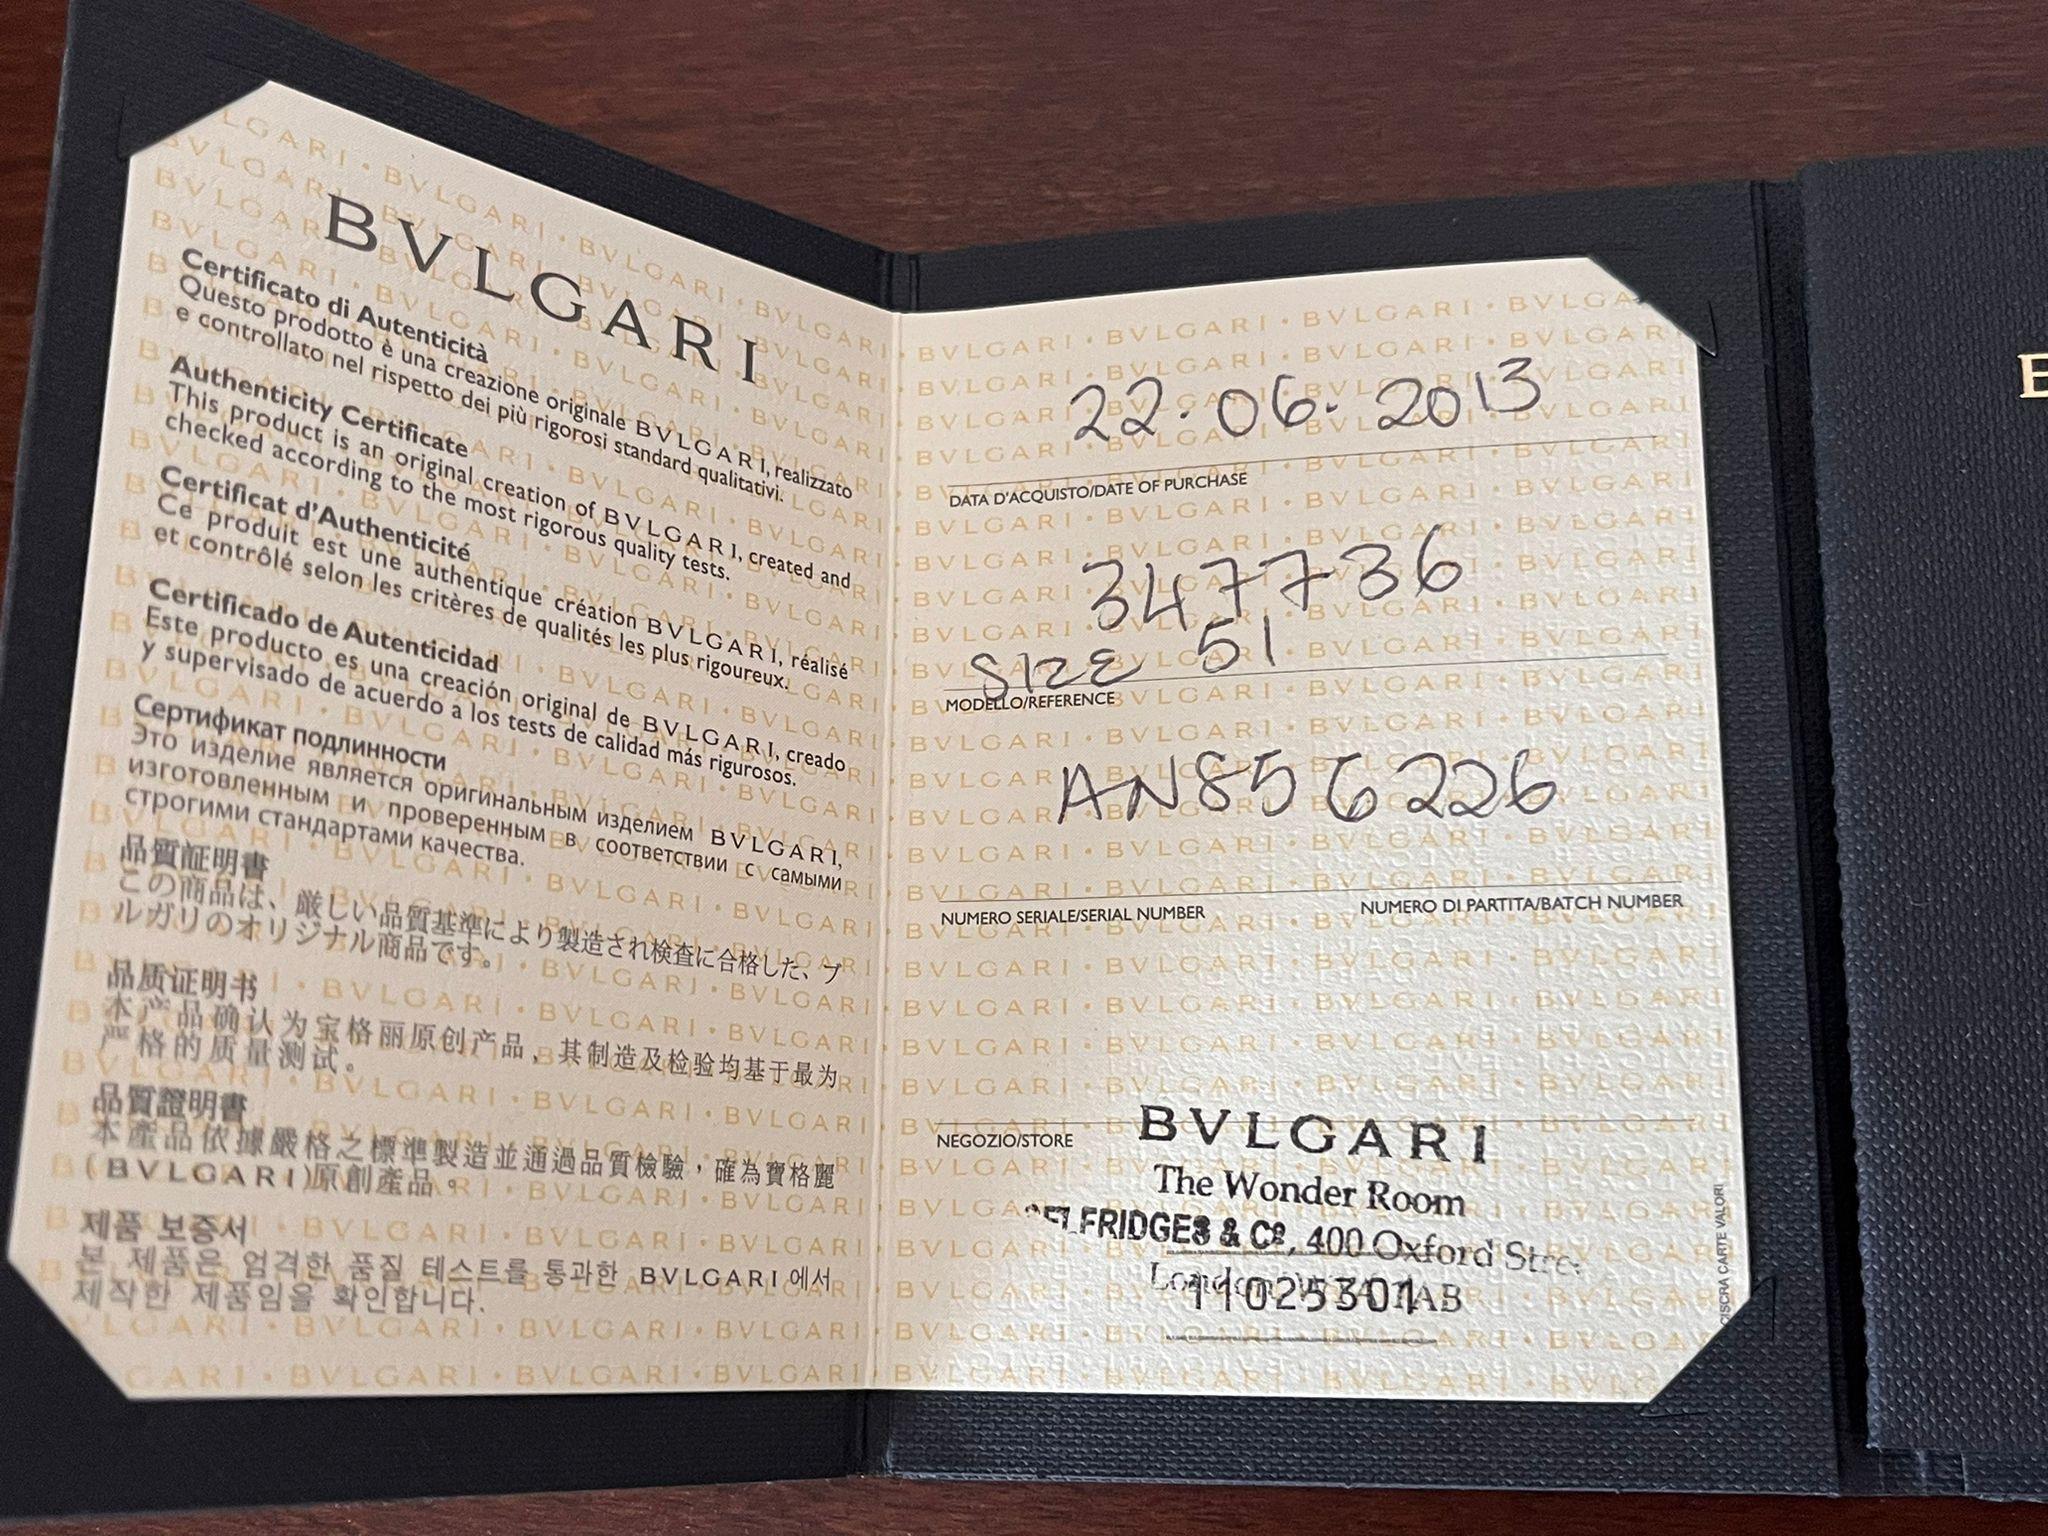 BVLGARI
Certificato di Autenticità
Questo prodotto è una creazione originale BVLGARI, realizzato
e controllato nel rispetto dei più rigorosi standard qualitativi.
Authenticity Certificate
This product is an original creation of BVLGARI, created and
checked according to the most rigorous quality tests.
Certificat d'Authenticité
Ce produit est une authentique création BVLGARI, réalisé
et contrôlé selon les critères de qualités les plus rigoureux.
Certificado de Autenticidad
Este producto es una creación original de BVLGARI, creado
y supervisado de acuerdo a los tests de calidad más rigurosos.
Сертификат подлинности
Это изделие является оригинальным изделием BVLGARI,
изготовленным и проверенным в соответствии с самыми
строгими стандартами качества.
品質証明書
この商品は、厳しい品質基準により製造され検査に合格した、ブ
ルガリのオリジナル商品です。
品质证明书
本产品确认为宝格丽原创产品，其制造及检验均基于最为
严格的质量测试。
品質證明書
本產品依據嚴格之標準製造並通過品質檢驗，確為寶格麗
(BVLGARI)原創產品。
제품 보증서
본 제품은 엄격한 품질 테스트를 통과한 BVLGARI에서
제작한 제품임을 확인합니다.
22.06.2013
DATA D'ACQUISTO/DATE OF PURCHASE
347736
SIZE 51
MODELLO/REFERENCE
AN856226
NUMERO SERIALE/SERIAL NUMBER NUMERO DI PARTITA/BATCH NUMBER
NEGOZIO/STORE
BVLGARI
The Wonder Room
SELFRIDGES & Co, 400 Oxford Street
London 1AB
11025301
CISCRA CARTE VALORI